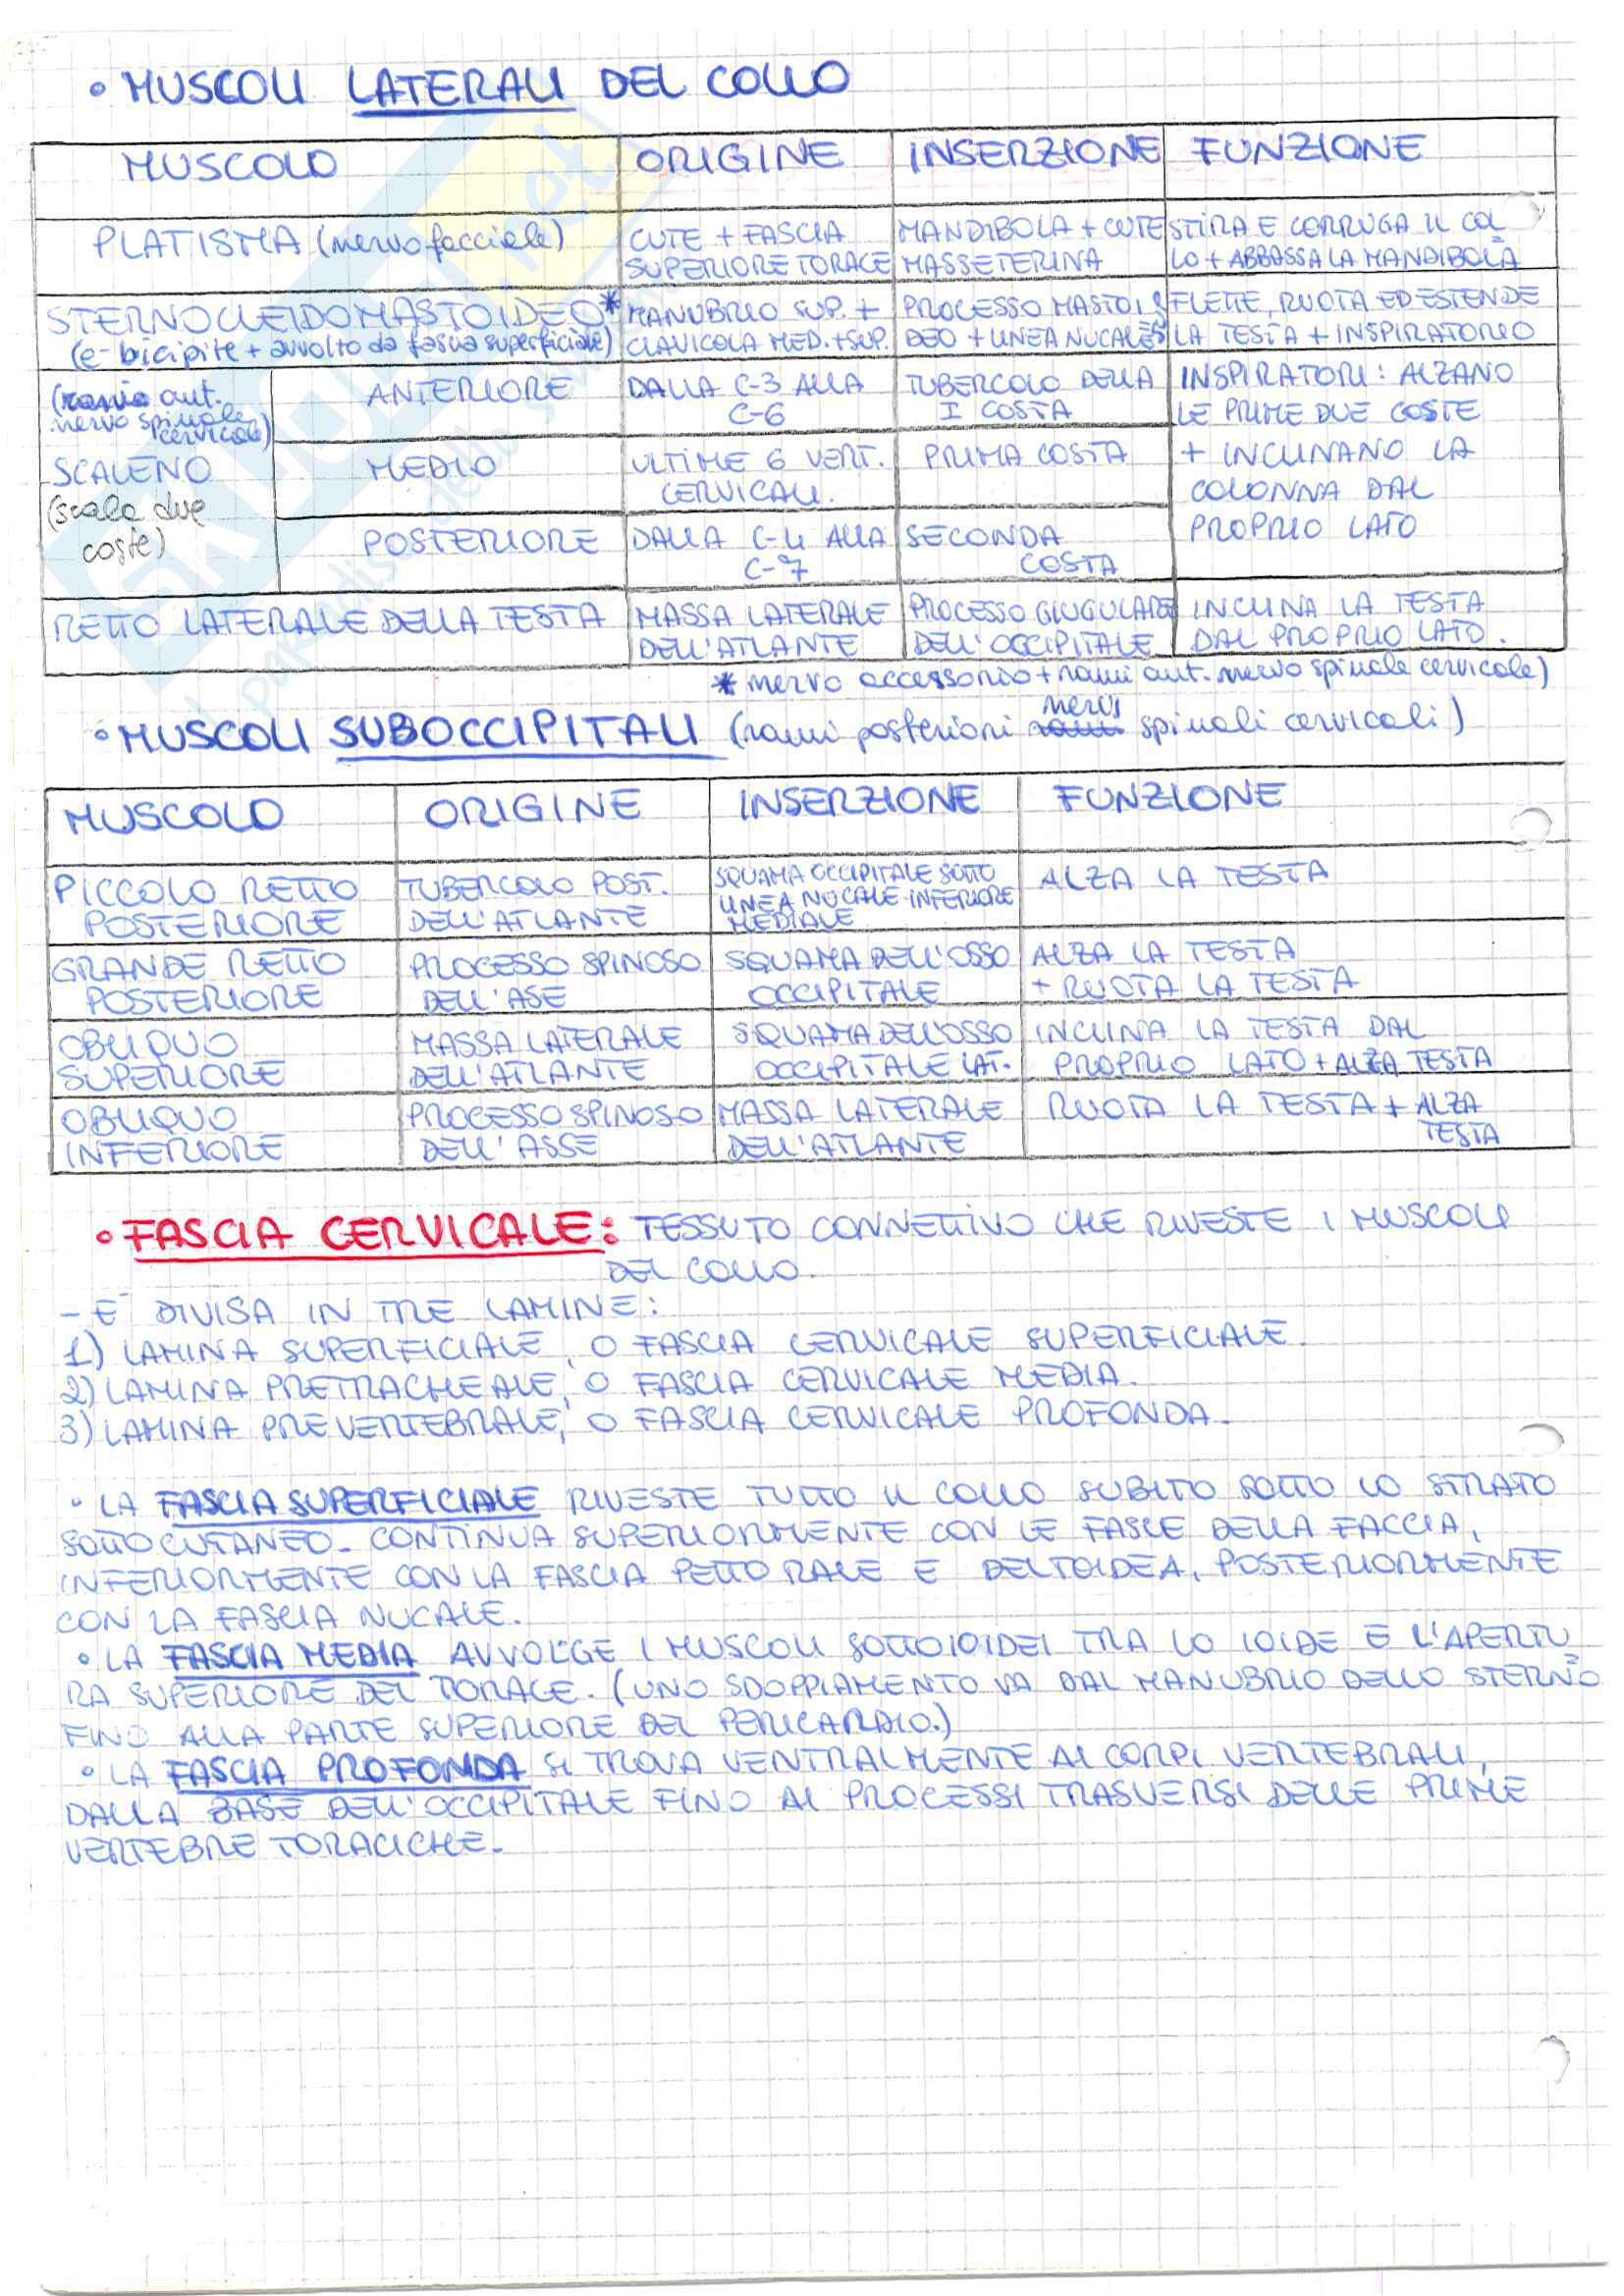 • MUSCOLI LATERALI DEL COLLO
MUSCOLO ORIGINE INSERZIONE FUNZIONE
PLATISMA (nervo facciale) CUTE + FASCIA MANDIBOLA + CUTE STIRA E CORRUGA IL COL
SUPERIORE TORACE MASSETERINA LO + ABBASSA LA MANDIBOLA
STERNOCLEIDOMASTOIDEO* MANUBRIO SUP. + PROCESSO MASTOI FLETTE, RUOTA ED ESTENDE
(e- bicipite + avvolto da fascia superficiale) CLAVICOLA MED. + SUP. DEO + LINEA NUCALE LA TESTA + INSPIRATORIO
(ramo ant. nervo spinale cervicale)
SCALENO
(scala due
coste)
ANTERIORE DALLA C-3 ALLA TUBERCOLO DELLA INSPIRATORI: ALZANO
C-6 I COSTA LE PRIME DUE COSTE
MEDIO ULTIME 6 VERT. PRIMA COSTA + INCLINANO LA
CERVICALI. COLONNA DAL
POSTERIORE DALLA C-4 ALLA SECONDA PROPRIO LATO
C-7 COSTA
RETTO LATERALE DELLA TESTA MASSA LATERALE PROCESSO GIUGULARE INCLINA LA TESTA
DELL'ATLANTE DELL'OCCIPITALE DAL PROPRIO LATO.
* nervo accessorio + rami ant. nervo spinale cervicale)
• MUSCOLI SUBOCCIPITALI (rami posteriori nervi spinali cervicali)
MUSCOLO ORIGINE INSERZIONE FUNZIONE
PICCOLO RETTO TUBERCOLO POST. SQUAMA OCCIPITALE SOTTO ALZA LA TESTA
POSTERIORE DELL'ATLANTE LINEA NUCALE INFERIORE
MEDIALE
GRANDE RETTO PROCESSO SPINOSO SQUAMA DELL'OSSO ALZA LA TESTA
POSTERIORE DELL'ASE OCCIPITALE + RUOTA LA TESTA
OBLIQUO MASSA LATERALE SQUAMA DELL'OSSO INCLINA LA TESTA DAL
SUPERIORE DELL'ATLANTE OCCIPITALE LAT. PROPRIO LATO + ALZA TESTA
OBLIQUO PROCESSO SPINOSO MASSA LATERALE RUOTA LA TESTA + ALZA
INFERIORE DELL'ASSE DELL'ATLANTE TESTA
• FASCIA CERVICALE: TESSUTO CONNETTIVO CHE RIVESTE I MUSCOLI
DEL COLLO.
- E' DIVISA IN TRE LAMINE:
1) LAMINA SUPERFICIALE, O FASCIA CERVICALE SUPERFICIALE.
2) LAMINA PRETRACHEALE, O FASCIA CERVICALE MEDIA.
3) LAMINA PREVERTEBRALE, O FASCIA CERVICALE PROFONDA.
• LA FASCIA SUPERFICIALE RIVESTE TUTTO IL COLLO SUBITO SOTTO LO STRATO
SOTTOCUTANEO. CONTINUA SUPERIORMENTE CON LE FASCE DELLA FACCIA,
INFERIORMENTE CON LA FASCIA PETTORALE E DELTOIDEA, POSTERIORMENTE
CON LA FASCIA NUCALE.
• LA FASCIA MEDIA AVVOLGE I MUSCOLI SOTTOIOIDEI TRA LO IOIDE E L'APERTU
RA SUPERIORE DEL TORACE. (UNO SDOPPIAMENTO VA DAL MANUBRIO DELLO STERNO
FINO ALLA PARTE SUPERIORE DEL PERICARDIO.)
• LA FASCIA PROFONDA SI TROVA VENTRALMENTE AI CORPI VERTEBRALI,
DALLA BASE DELL'OCCIPITALE FINO AI PROCESSI TRASVERSI DELLE PRIME
VERTEBRE TORACICHE.